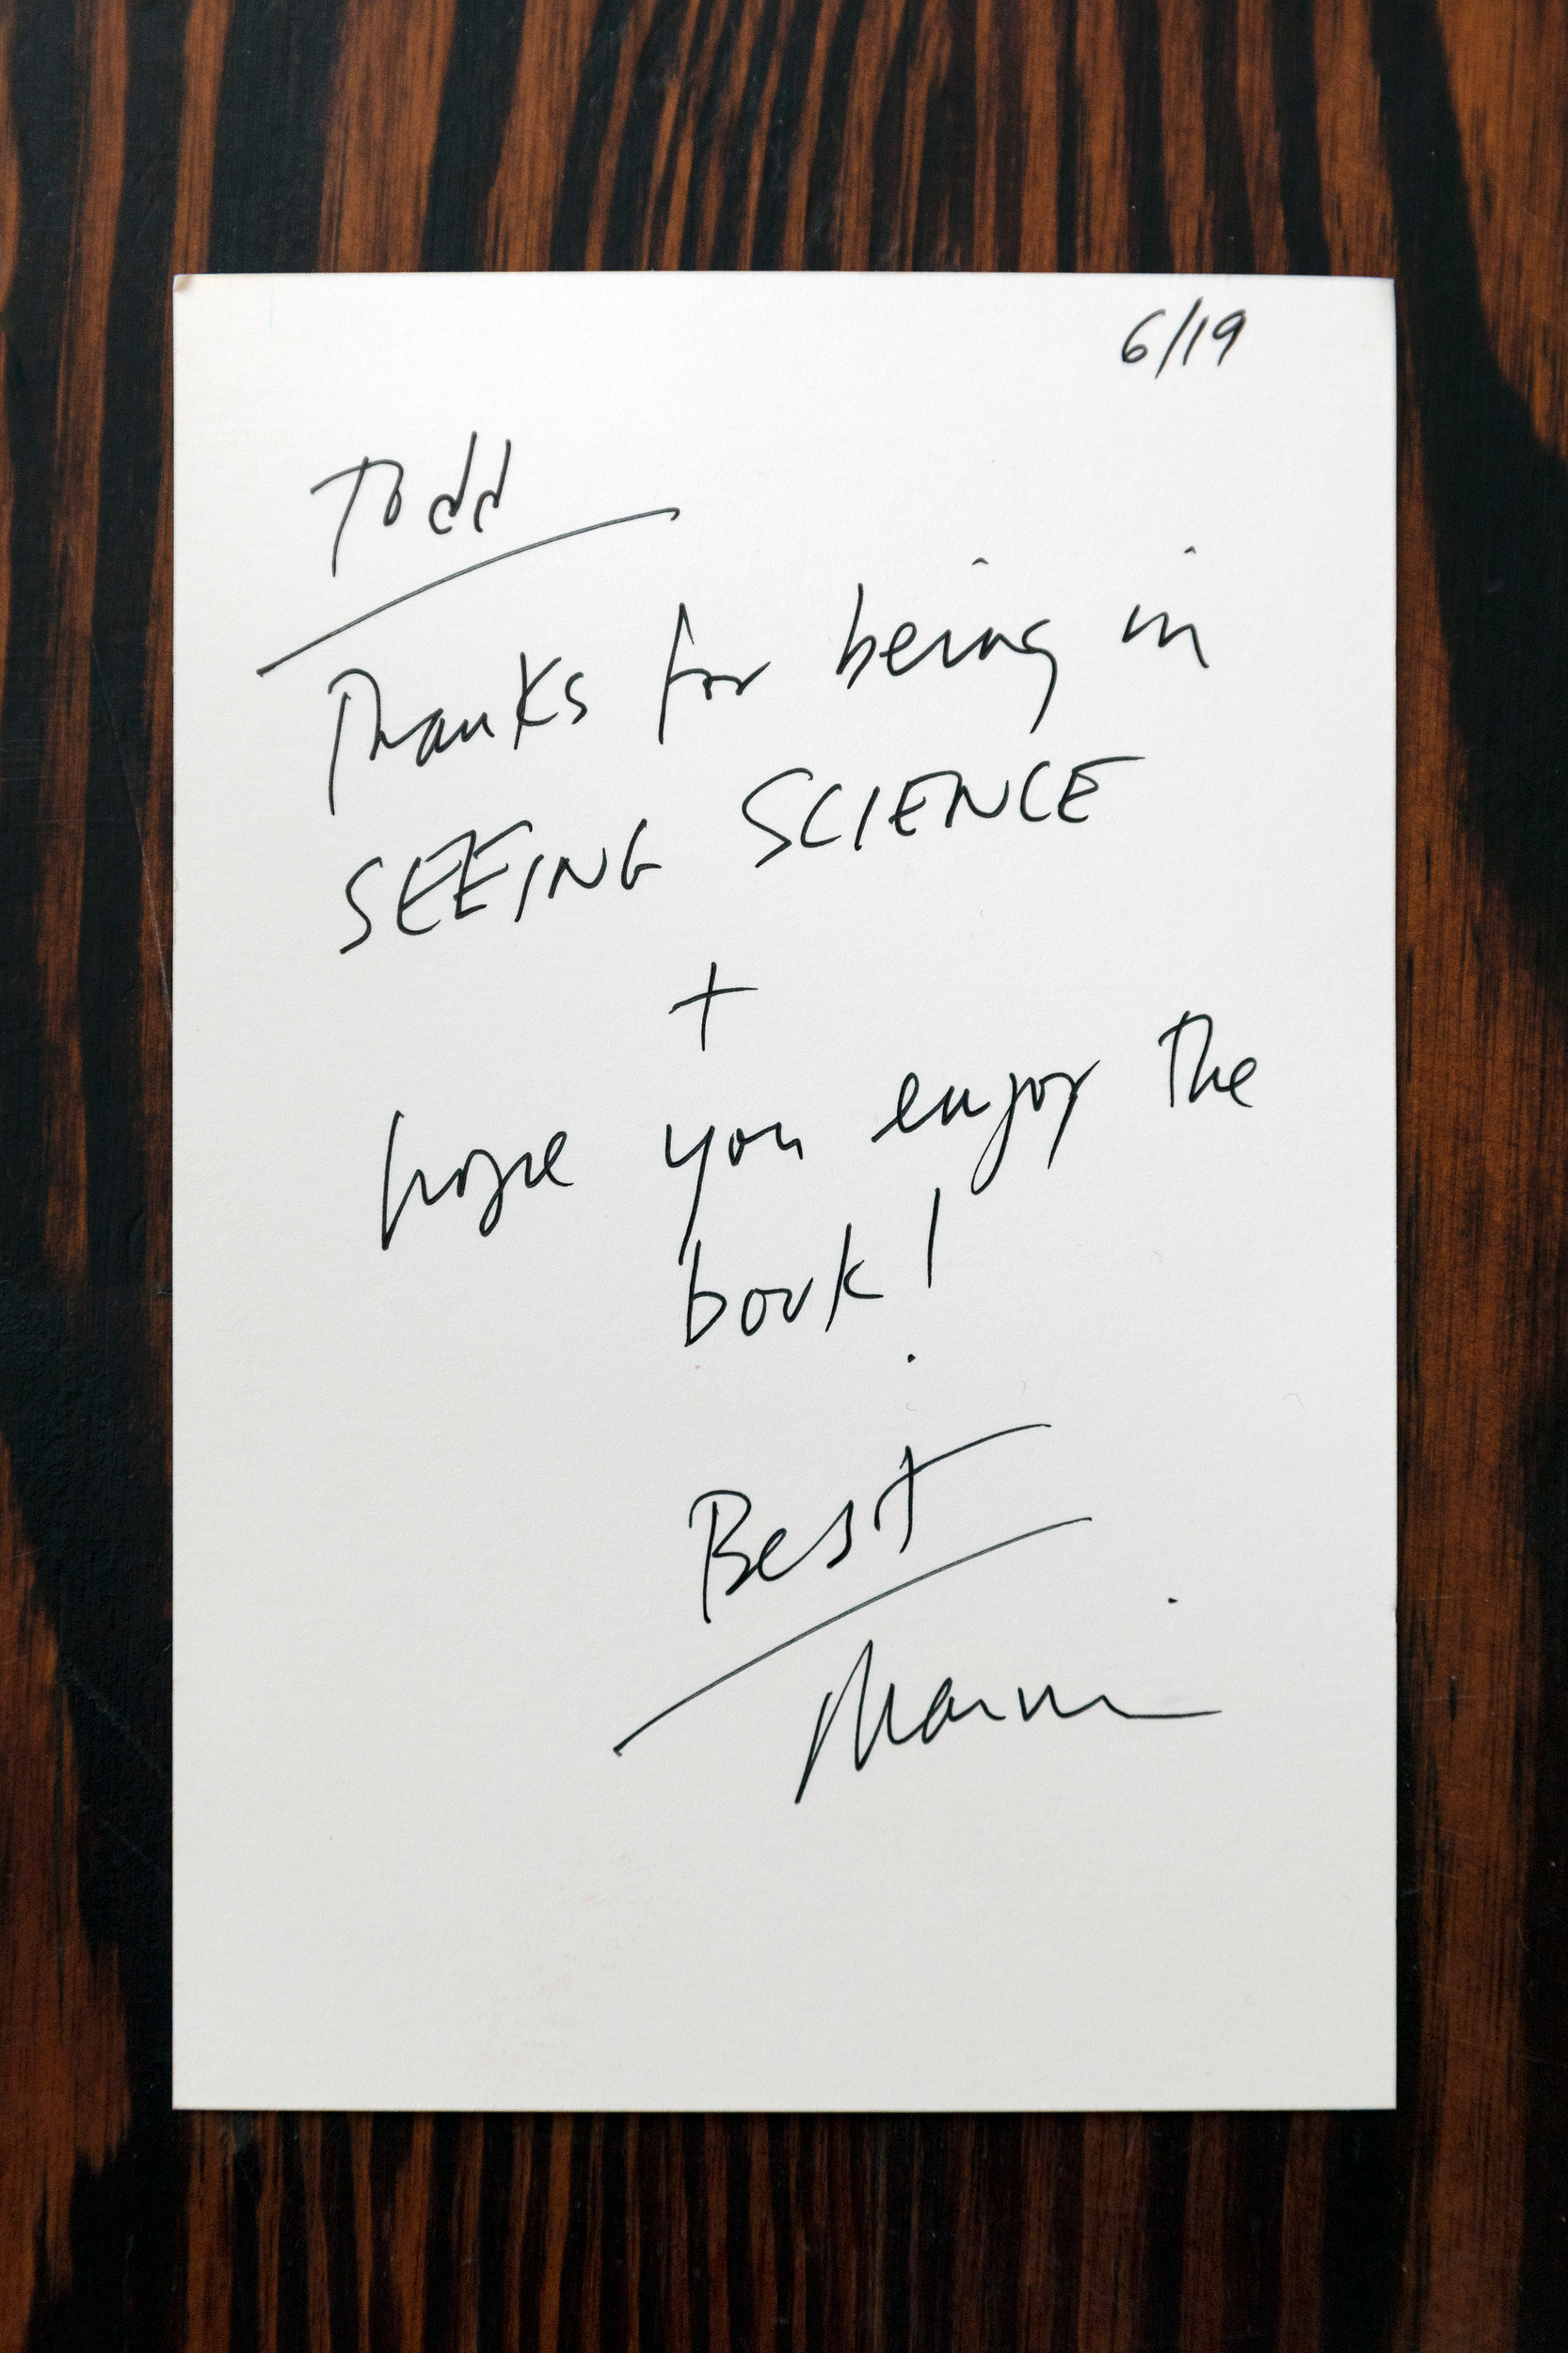 6/19
Todd
Thanks for being in
SEEING SCIENCE
+
hope you enjoy the
book!
Best
Marvin